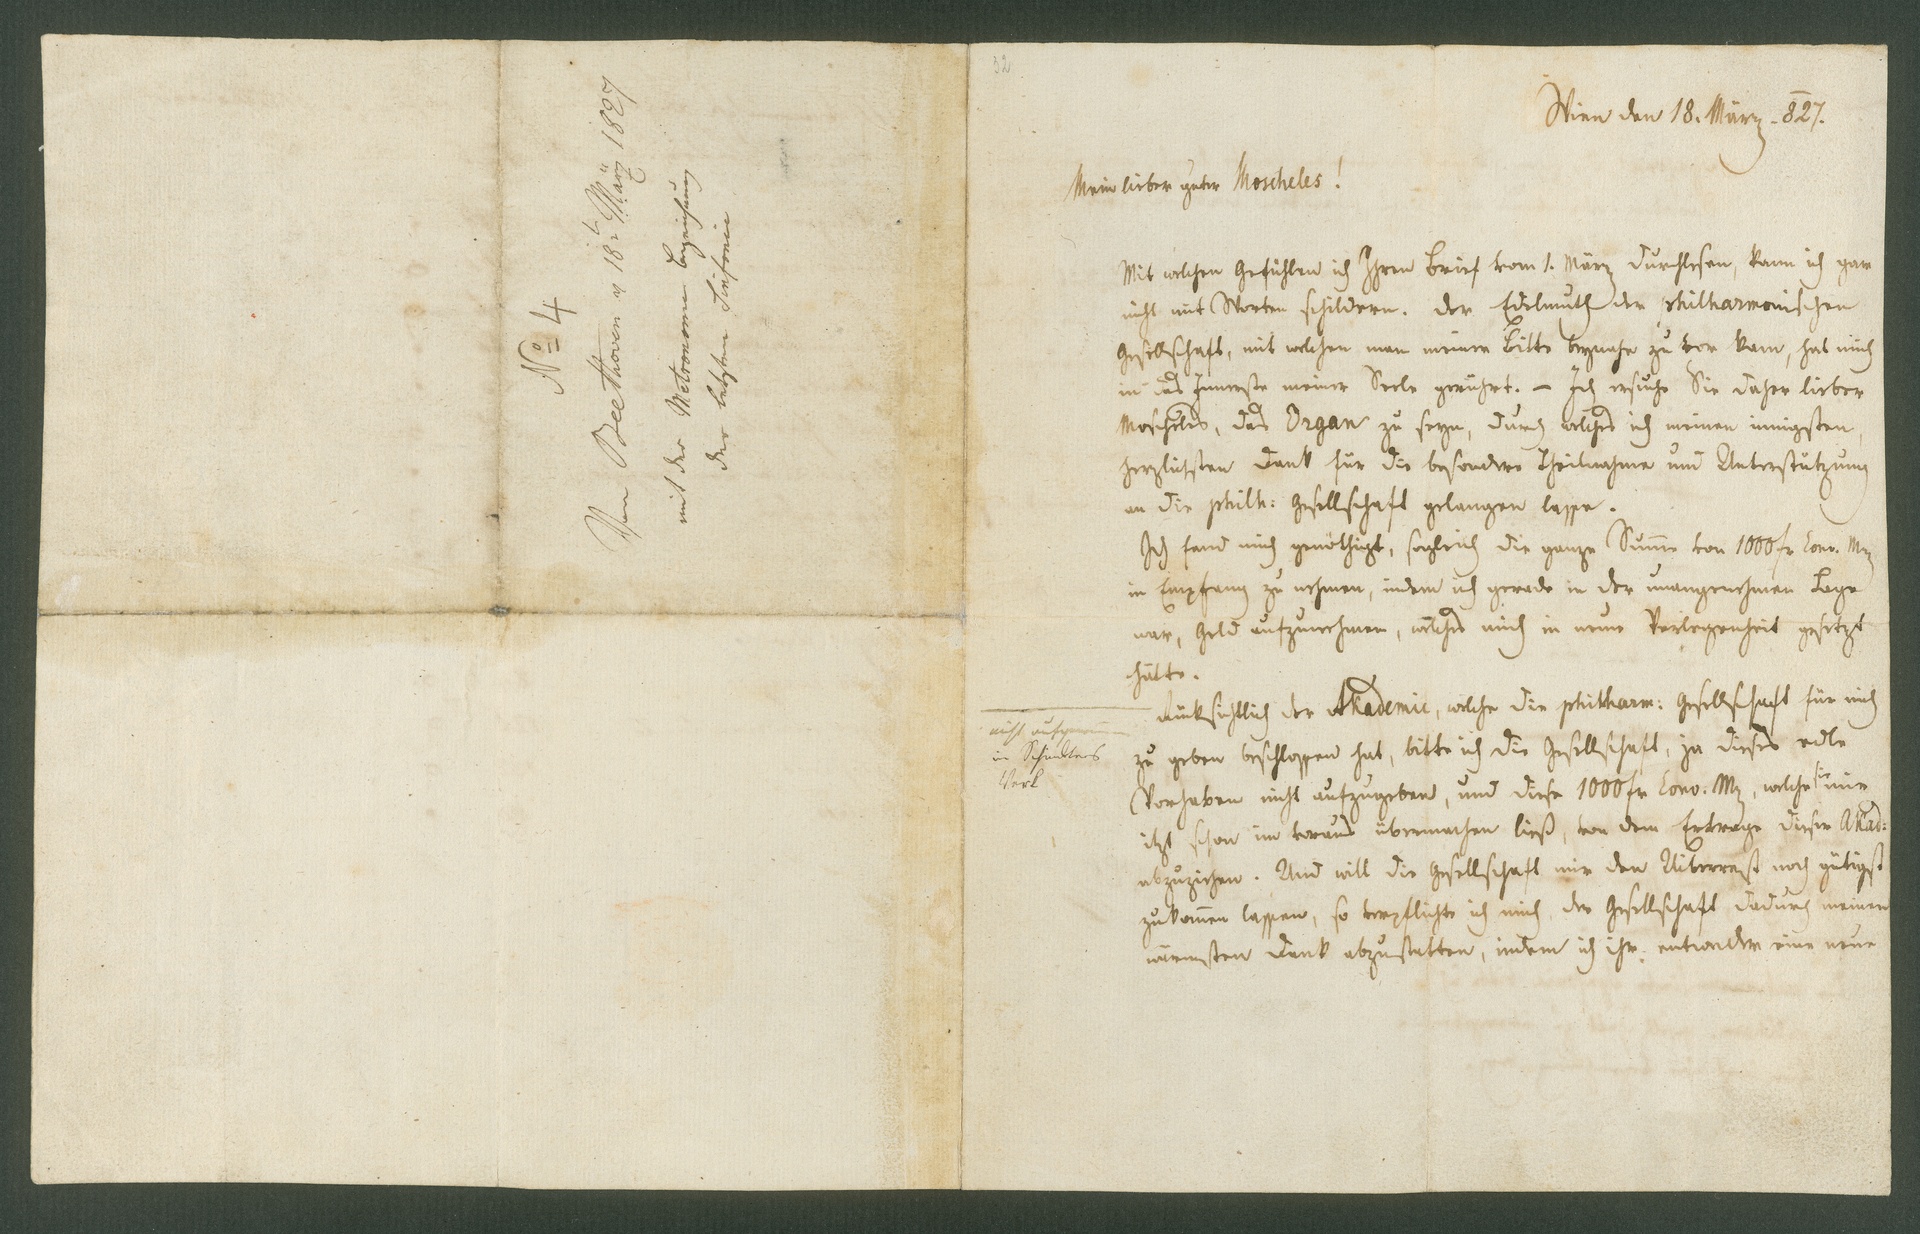 No 4
Von Beethoven v 18t März 1827
mit der Metronomen bezeichnung
der letzten Sinfonie
32
Wien den 18. März 827.
Mein lieber guter Moscheles!
Mit welchen Gefühlen ich Ihren Brief vom 1. März durchlesen, kann ich gar
nicht mit Worten schildern. Der Edelmuth der philharmonischen
Gesellschaft, mit welchen man meiner Bitte beynahe zuvor kam, hat mich
in das Innerste meiner Seele gerührt. – Ich ersuche Sie daher lieber
Moscheles, das Organ zu seyn, durch welches ich meinen innigsten,
herzlichsten Dank für die besondere Theilnahme und Unterstützung
an die philh: Gesellschaft gelangen lasse.
Ich fand mich genöthigt, sogleich die ganze Sum̅e von 1000 fr Conv. Mz
in Empfang zu nehmen, indem ich gerade in der unangenehmen Lage
war, Geld aufzunehmen, welches mich in neue Verlegenheit gesetzt
hätte.
Rücksichtlich der Akademie, welche die philharm: Gesellschaft für mich
zu geben beschlossen hat, bitte ich die Gesellschaft, ja dieses edle
Vorhaben nicht aufzugeben, und diese 1000 fr Conv: Mz, welche sie mir
itzt schon im voraus übermachen ließ, von dem Ertrage dieser Akad:
abzuziehen. Und will die Gesellschaft mir den Uiberrest noch gütigst
zukom̅en lassen, so verpflichte ich mich, der Gesellschaft dadurch meinen
wärmsten Dank abzustatten, indem ich ihr entweder eine neue
nicht
in Schindlers
Werk